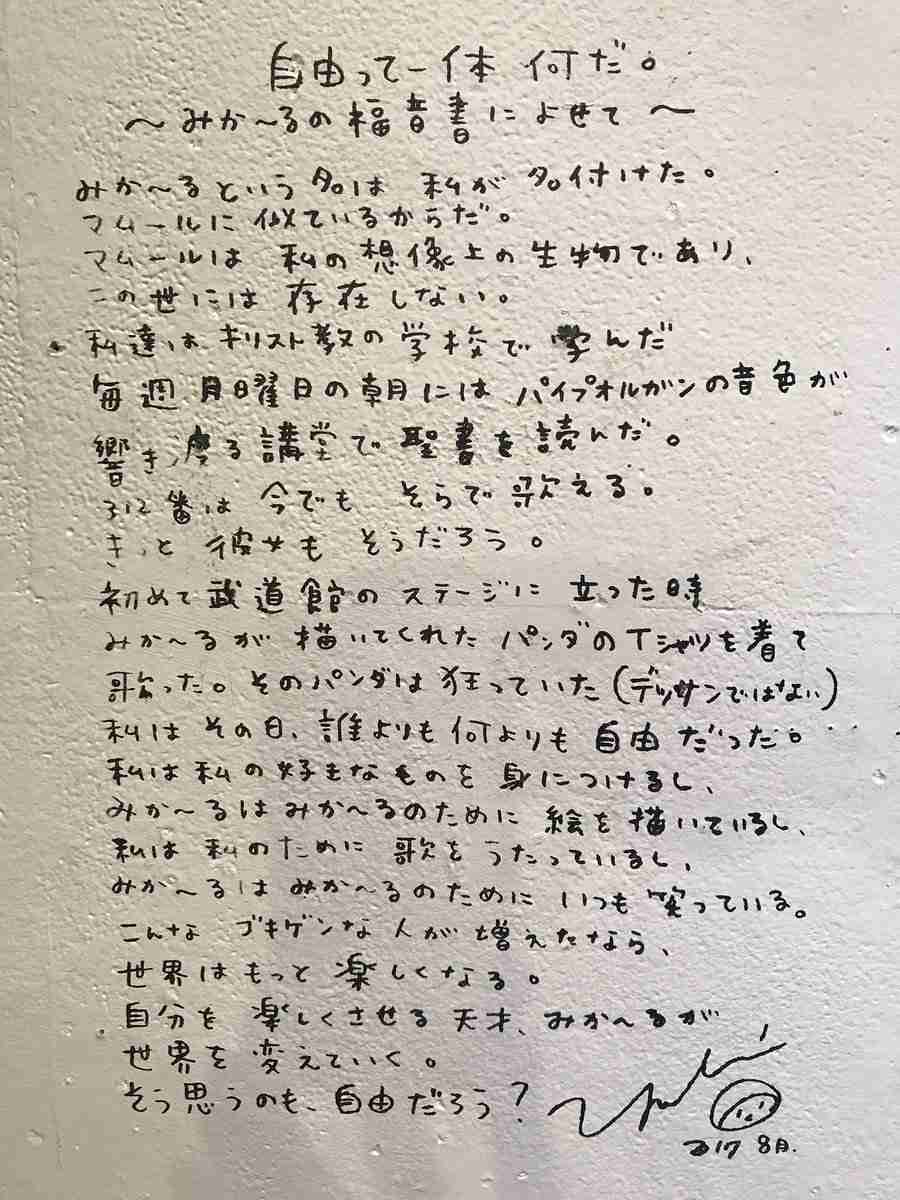 自由って一体 何だ。
〜みか〜るの福音書によせて〜
みか〜るという名は 私が名付けた。
マムールに似ているからだ。
マムールは 私の想像上の生物であり、
この世には存在しない。
私達はキリスト教の学校で学んだ
毎週月曜日の朝にはパイプオルガンの音色が
響き渡る講堂で聖書を読んだ。
312番は今でも そらで歌える。
きっと彼女もそうだろう。
初めて武道館のステージに立った時
みか〜るが描いてくれたパンダのTシャツを着て
歌った。そのパンダは狂っていた(デッサンではない)
私はその日、誰よりも何よりも自由だった。
私は私の好きなものを身につけるし、
みか〜るはみか〜るのために絵を描いているし、
私は私のために歌をうたっているし、
みか〜るはみか〜るのためにいつも笑っている。
こんなゴキゲンな人が増えたなら、
世界はもっと楽しくなる。
自分を楽しくさせる天才、みか〜るが
世界を変えていく。
そう思うのも、自由だろう?
2017 8月.